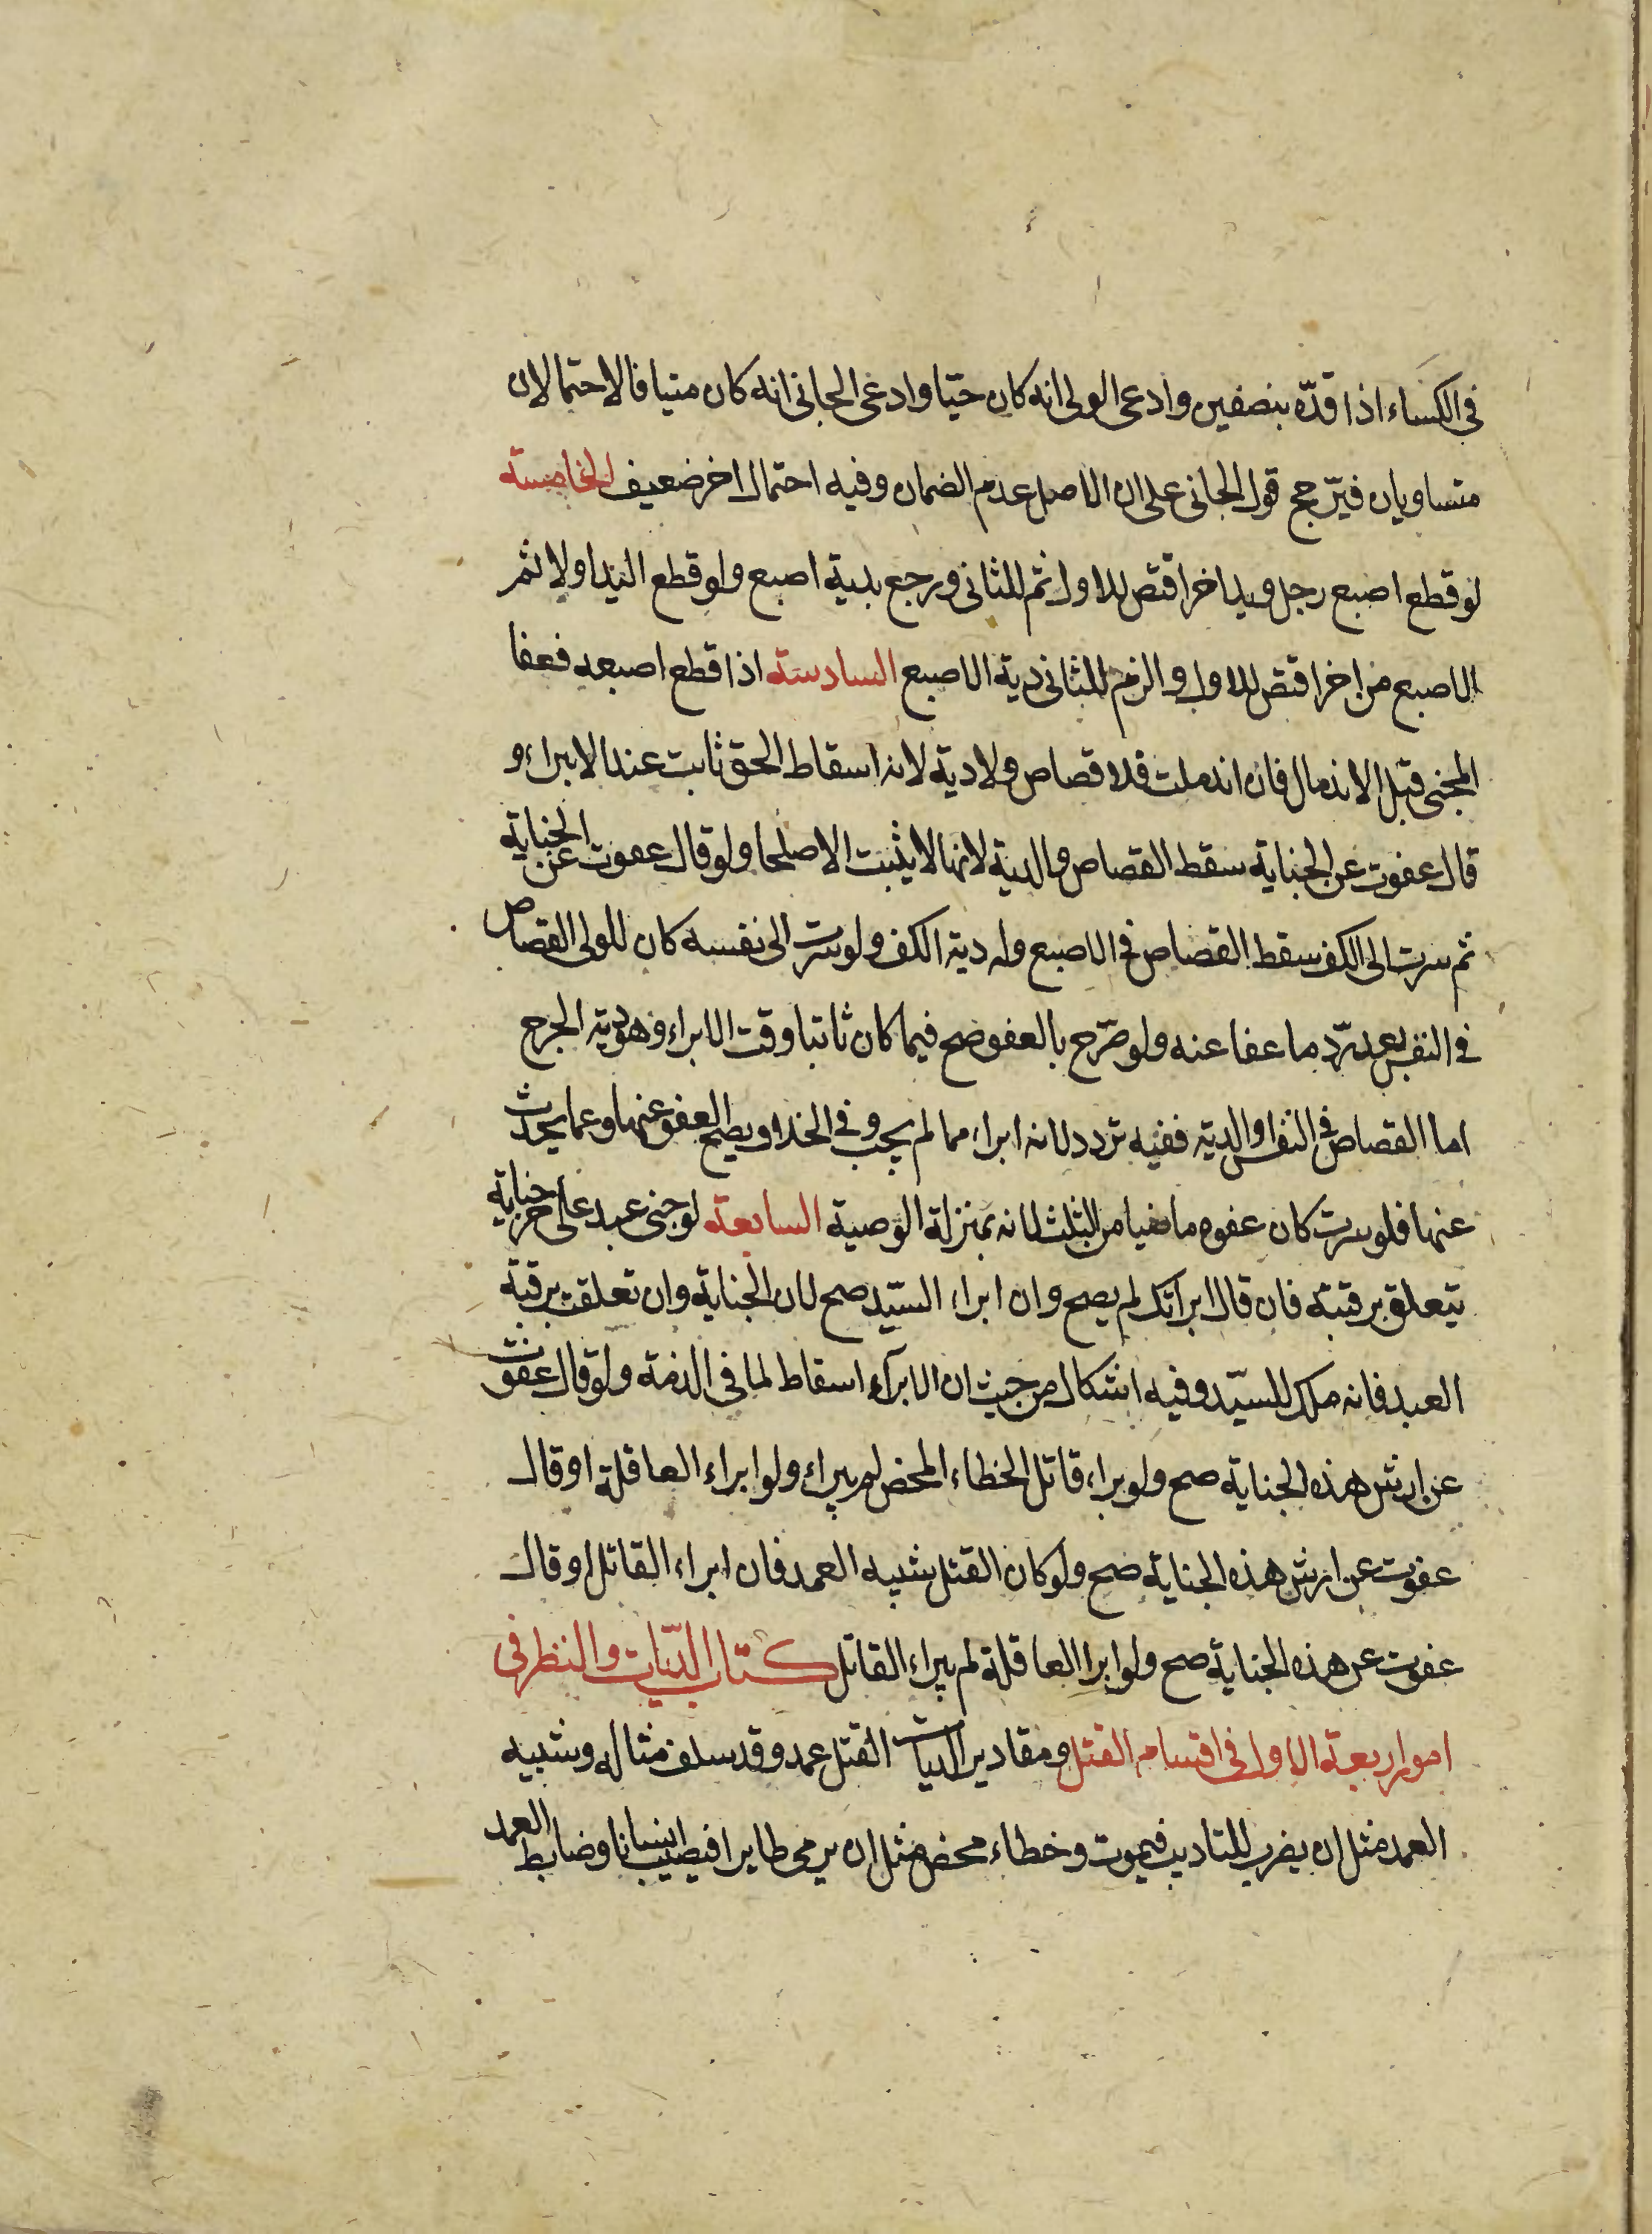 في الكساء اذا قدّه بنصفين وادعى الولى انه كان حيّا وادعى الجانى انه كان ميتا فالاحتمالان
متساويان فيرّجح قول الجانى على ان الاصل عدم الضمان وفيه احتمال اخر ضعيف الخامسة
لو قطع اصبع رجل ويد اخر اقتص للاول ثم للثانى ورجع بدية اصبع ولو قطع اليد اولا ثم
الاصبع من اخر اقتص للاول والزم للثانى دية الاصبع السادسة اذا قطع اصبعه فعفا
المجنى قبل الاندمال فان اندملت فلا قصاص ولا دية لانه اسقاط الحق ثابت عند الابراء و
قال عفوت عن الجناية سقط القصاص والدية لانها لا يثبت الا صلحا ولو قال عفوت عن الجناية
ثم سرت الى الكف سقط القصاص في الاصبع وله دية الكف ولو سرت الى نفسه كان للولى القصاص
في النفس بعد ردّ ما عفا عنه ولو صرّح بالعفو صح فيما كان ثابتا وقت الابراء وهو دية الجرح
اما القصاص في النفس او الدية ففيه تردد لانه ابراء مما لم يجب وفي الخلاف يصح العفو عنها وعما يحدث
عنها فلو سرت كان عفوه ماضيا من الثلث لانه بمنزلة الوصية السابعة لو جنى عبد على حر جناية
يتعلق برقبته فان قال ابراتك لم يصح وان ابراء السيّد صح لان الجناية وان تعلقت برقبة
العبد فانه ملك للسيّد وفيه اشكال من حيث ان الابراء اسقاط لما في الذمة ولو قال عفوت
عن ارش هذه الجناية صح ولو براء قاتل الخطاء المحض لم يبراء ولو ابراء العاقلة او قال
عفوت عن ارش هذه الجناية صح ولو كان القتل شبيه العمد فان ابراء القاتل او قال
عفوت عن هذه الجناية صح ولو ابرا العاقلة لم يبراء القاتل كتاب الديّات والنظر في
امور اربعة الاول في اقسام القتل ومقادير الديات القتل عمد وقد سلف مثاله وشبيه
العمد مثل ان يضرب للتاديب فيموت وخطاء محض مثل ان يرمى طايرا فيصيب انسانا وضابط العمد